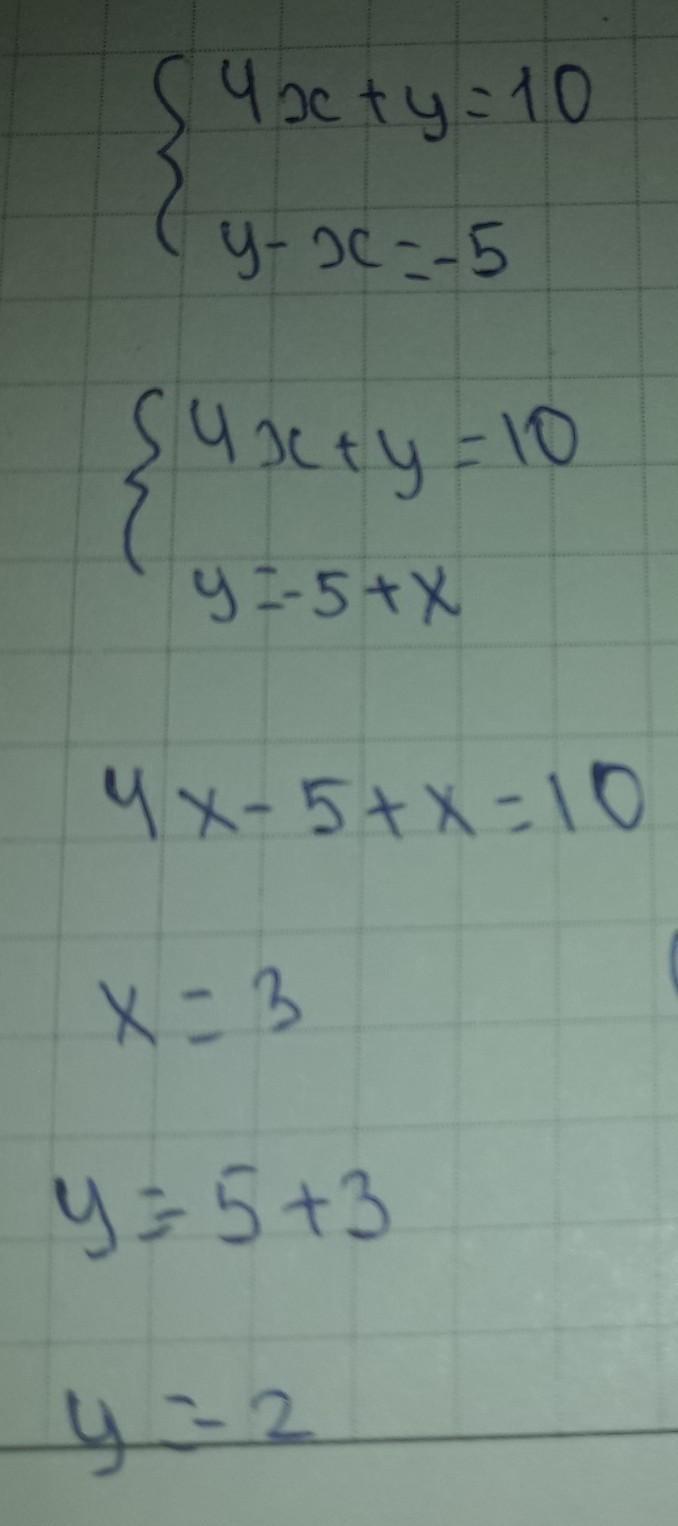 4x+y=10
y-x=-5
4x+y=10
y=-5+x
4x-5+x=10
x=3
y=-5+3
y=-2